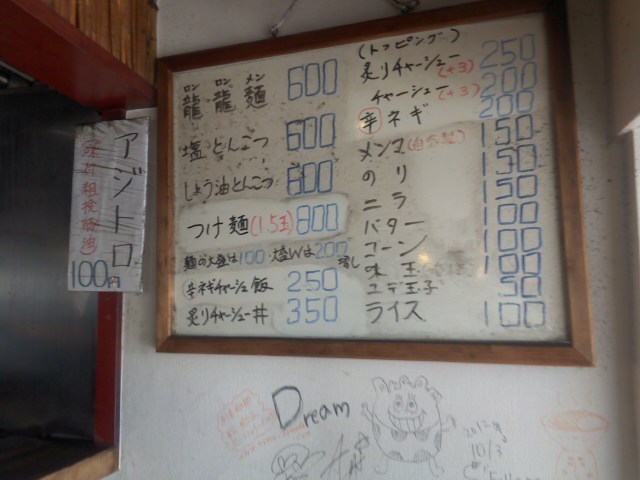 ロン ロン メン
龍 龍 麺 600
塩 とんこつ 600
しょう油とんこつ 600
つけ麺(1.5玉) 800
麺の大盛は100
辛ネギチャーシュー飯 250
炙りチャーシュー丼 350
(トッピング)
炙りチャーシュー(+3) 250
チャーシュー(+3) 200
辛ネギ 200
メンマ(自家製) 150
のり 150
ニラ 150
バター 100
コーン 100
味玉
ユデ玉子 50
ライス 100
アジトロ
100円
Dream
10/3